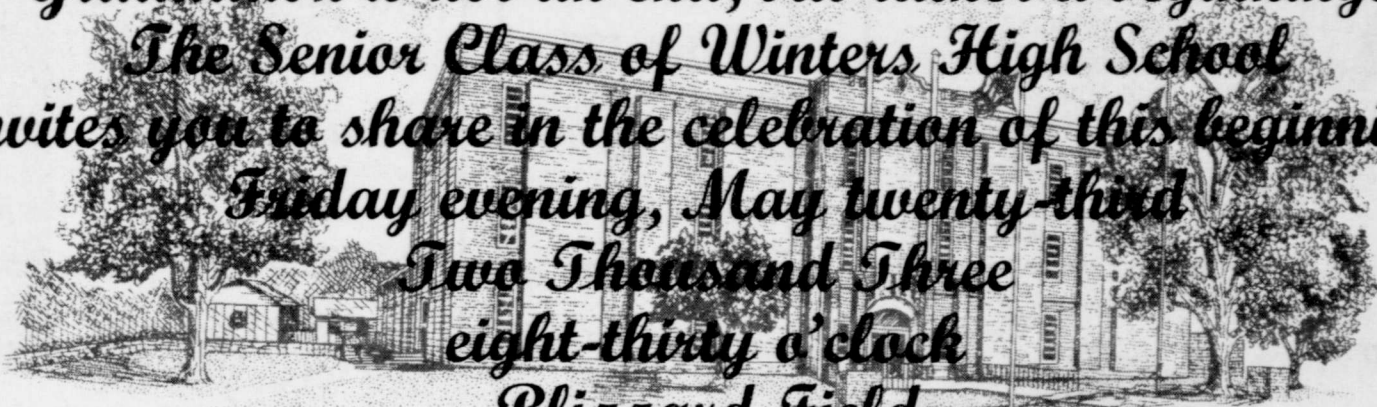 The Senior Class of Winters High School
vites you to share in the celebration of this beginni
Friday evening, May twenty-third
Two Thousand Three
eight-thirty o'clock
Blizzard Field